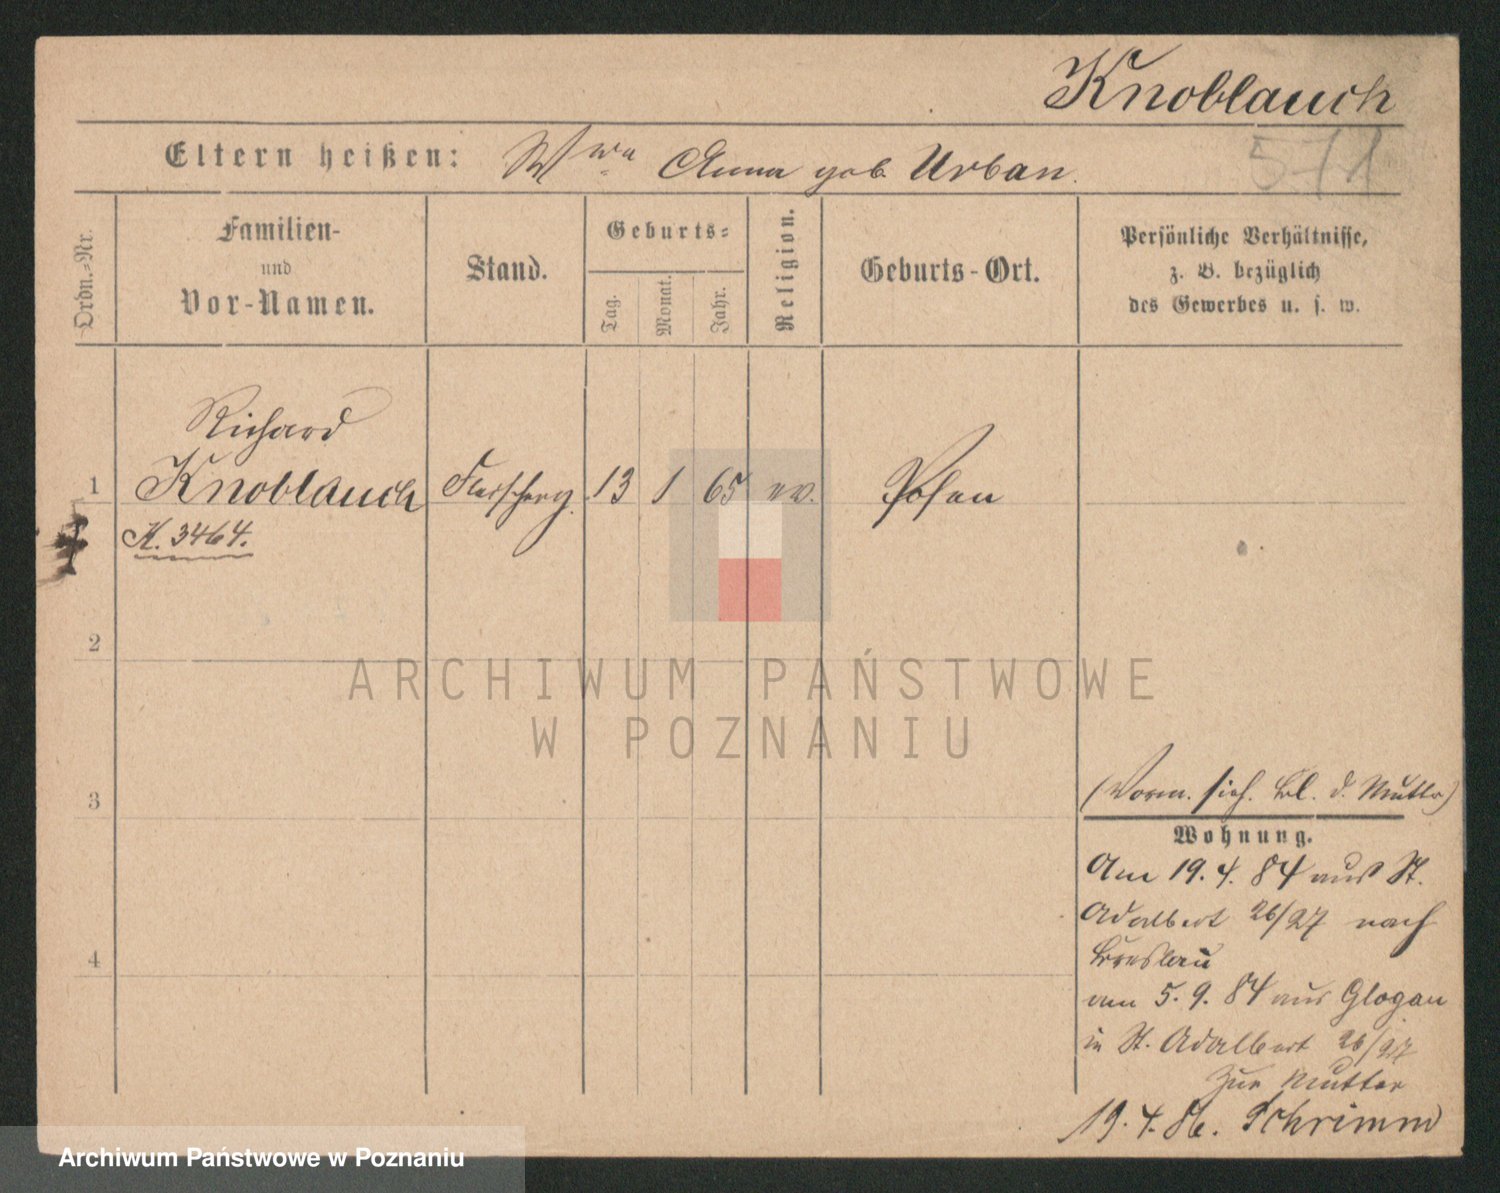 Knoblauch
571
Eltern heißen: Wwe Anna geb. Urban.
Ordn.-Nr.
Familien-
und
Vor-Namen.
Stand.
Geburts-
Tag.
Monat.
Jahr.
Religion.
Geburts-Ort.
Persönliche Verhältnisse,
z. B. bezüglich
des Gewerbes u. s. w.
Richard
1 Knoblauch Fleischerg. 13 1 65 ev. Posen
K. 3464.
2
3
4
(Vorm. sieh. Bl. d. Mutter)
Wohnung.
Am 19. 4. 84 aus St.
Adalbert 26/27 nach
Breslau
am 5. 9. 84 aus Glogau
in St. Adalbert 26/27
zur Mutter
19. 4. 86. Schrimm
ARCHIWUM PAŃSTWOWE
W POZNANIU
Archiwum Państwowe w Poznaniu